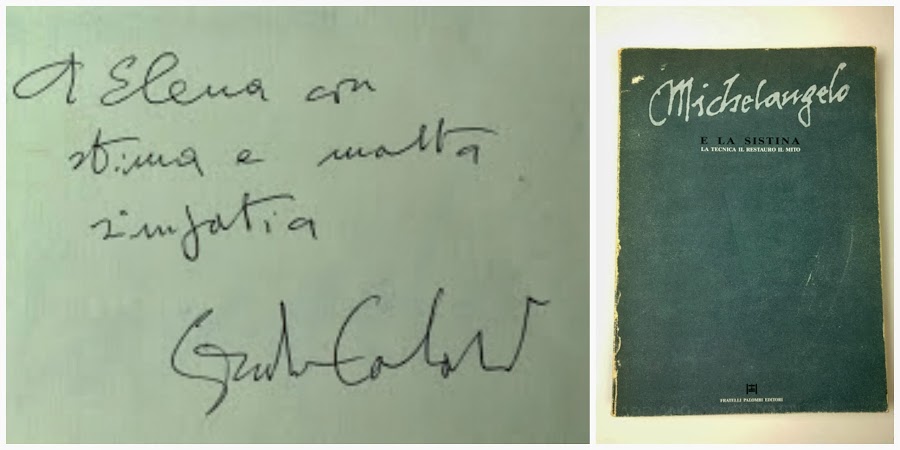 A Elena con
stima e molta
simpatia
Michelangelo
E LA SISTINA
LA TECNICA IL RESTAURO IL MITO
FRATELLI PALOMBI EDITORI